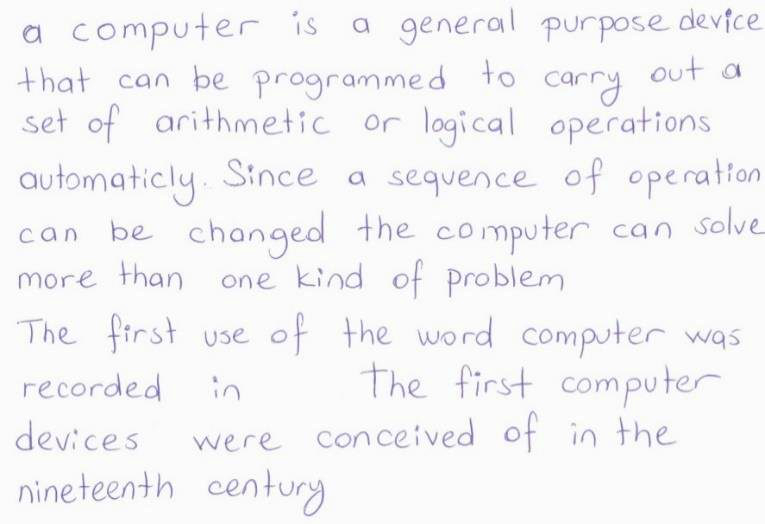 a computer is a general purpose device
that can be programmed to carry out a
set of arithmetic or logical operations
automaticly. Since a sequence of operation
can be changed the computer can solve
more than one kind of problem
The first use of the word computer was
recorded in The first computer
devices were conceived of in the
nineteenth century